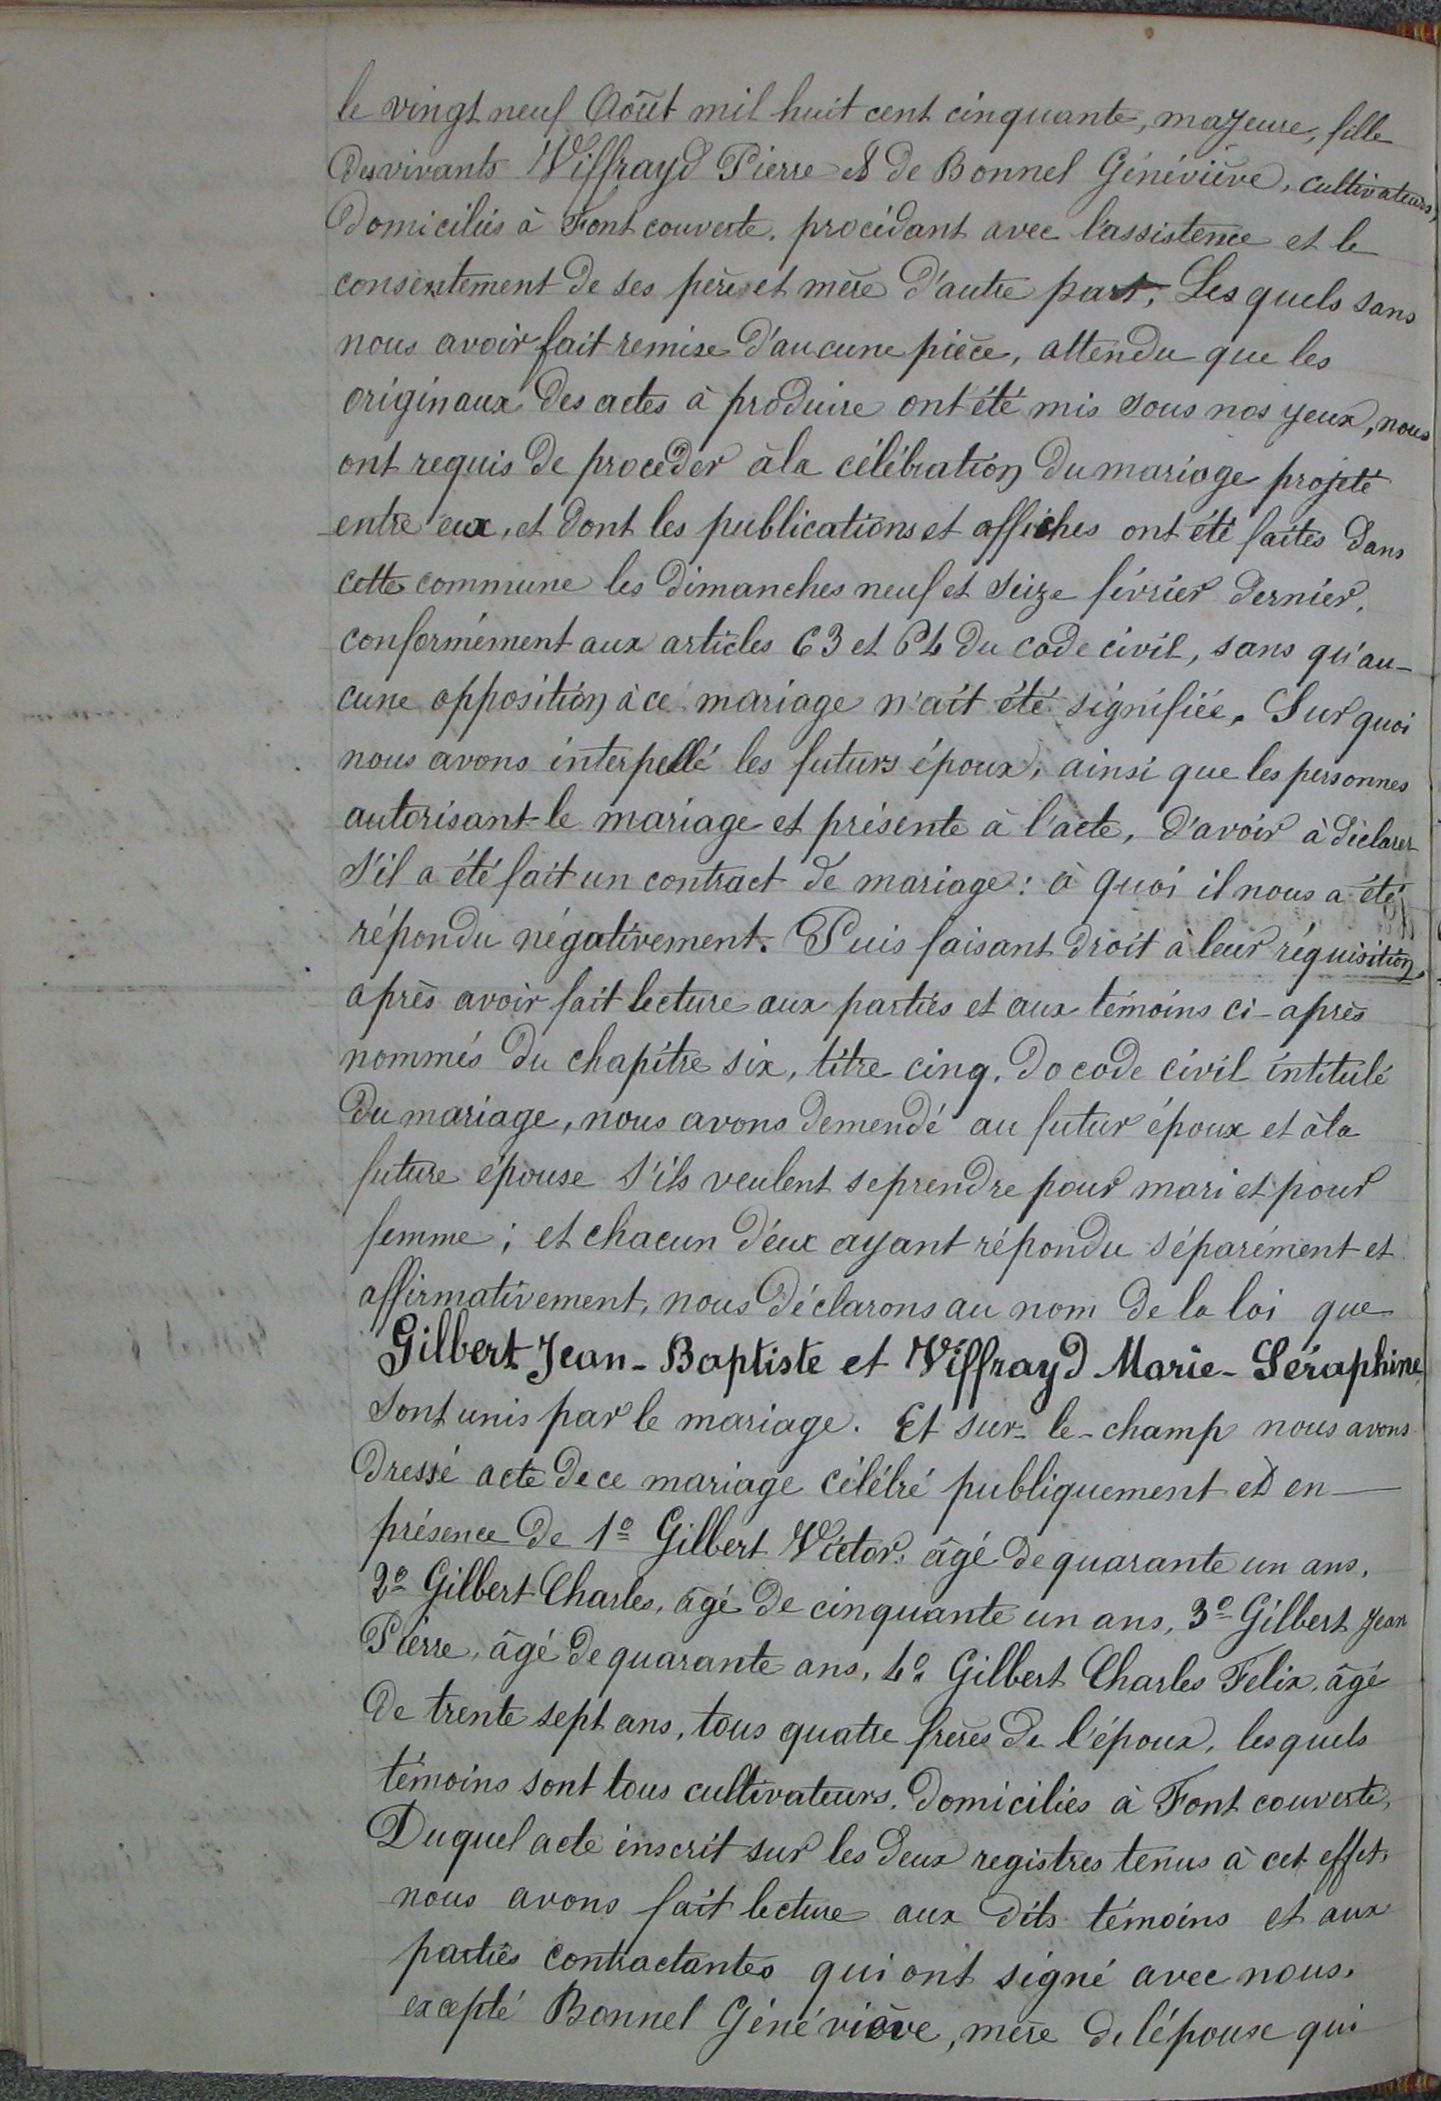 le vingt neuf Août mil huit cent cinquante, majeure, fille
des vivants Viffrayd Pierre et de Bonnel Généviève, cultivateurs,
Domiciliés à Font couverte, procédant avec l'assistence et le
consentement de ses père et mère d'autre part, Les quels sans
nous avoir fait remise d'aucune pièce, attendu que les
originaux des actes à produire ont été mis sous nos yeux, nous
ont requis de procéder à la célébration du mariage projeté
entre eux, et dont les publications et affiches ont été faites dans
cette commune les dimanches neuf et seize février dernier,
conformément aux articles 63 et 64 du code civil, sans qu'au-
cune opposition à ce mariage n'ait été signifiée. Sur quoi
nous avons interpellé les futurs époux, ainsi que les personnes
autorisant le mariage et présente à l'acte, d'avoir à déclarer
s'il a été fait un contract de mariage : à quoi il nous a été
répondu négativement. Puis faisant droit à leur réquisition,
après avoir fait lecture aux parties et aux témoins ci-après
nommés du chapitre six, titre cinq, do code civil intitulé
Du mariage, nous avons demendé au futur époux et à la
future épouse s'ils veulent se prendre pour mari et pour
femme ; et chacun d'eux ayant répondu séparément et
affirmativement, nous déclarons au nom de la loi que
Gilbert Jean-Baptiste et Viffrayd Marie-Séraphine
sont unis par le mariage. Et sur-le-champ nous avons
dressé acte de ce mariage célébré publiquement et en
présence de 1º Gilbert Victor, âgé de quarante un ans,
2º Gilbert Charles, âgé de cinquante un ans, 3º Gilbert Jean
Pierre, âgé de quarante ans, 4º Gilbert Charles Felix, âgé
de trente sept ans, tous quatre frères de l'époux, lesquels
témoins sont tous cultivateurs, domiciliés à Font couverte,
Duquel acte inscrit sur les deux registres tenus à cet effet,
nous avons fait lecture aux dits témoins et aux
parties contractantes qui ont signé avec nous,
excepté Bonnel Généviève, mère de l'épouse qui